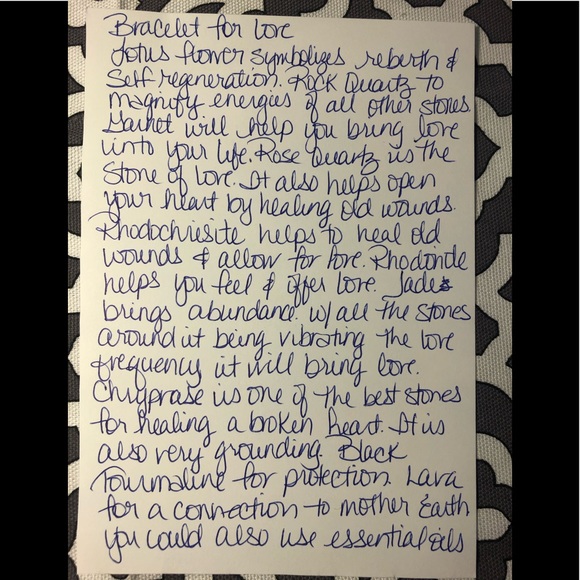 Bracelet for love
Lotus flower symbolizes reberth &
Self regeneration. Rock Quartz to
magnify energies of all other stones
Garnet will help you bring love
into your life. Rose Quartz is the
Stone of love. It also helps open
your heart by healing old wounds.
Rhodochriesite helps to heal old
wounds & allow for love. Rhodonite
helps you feel & offer love. Jade
brings abundance w/ all the stones
around it being vibrating the love
frequency it will bring love.
Chryprase is one of the best stones
for healing a broken heart. It is
also very grounding. Black
Tourmaline for protection. Lava
for a connection to mother Earth
you could also use essential oils